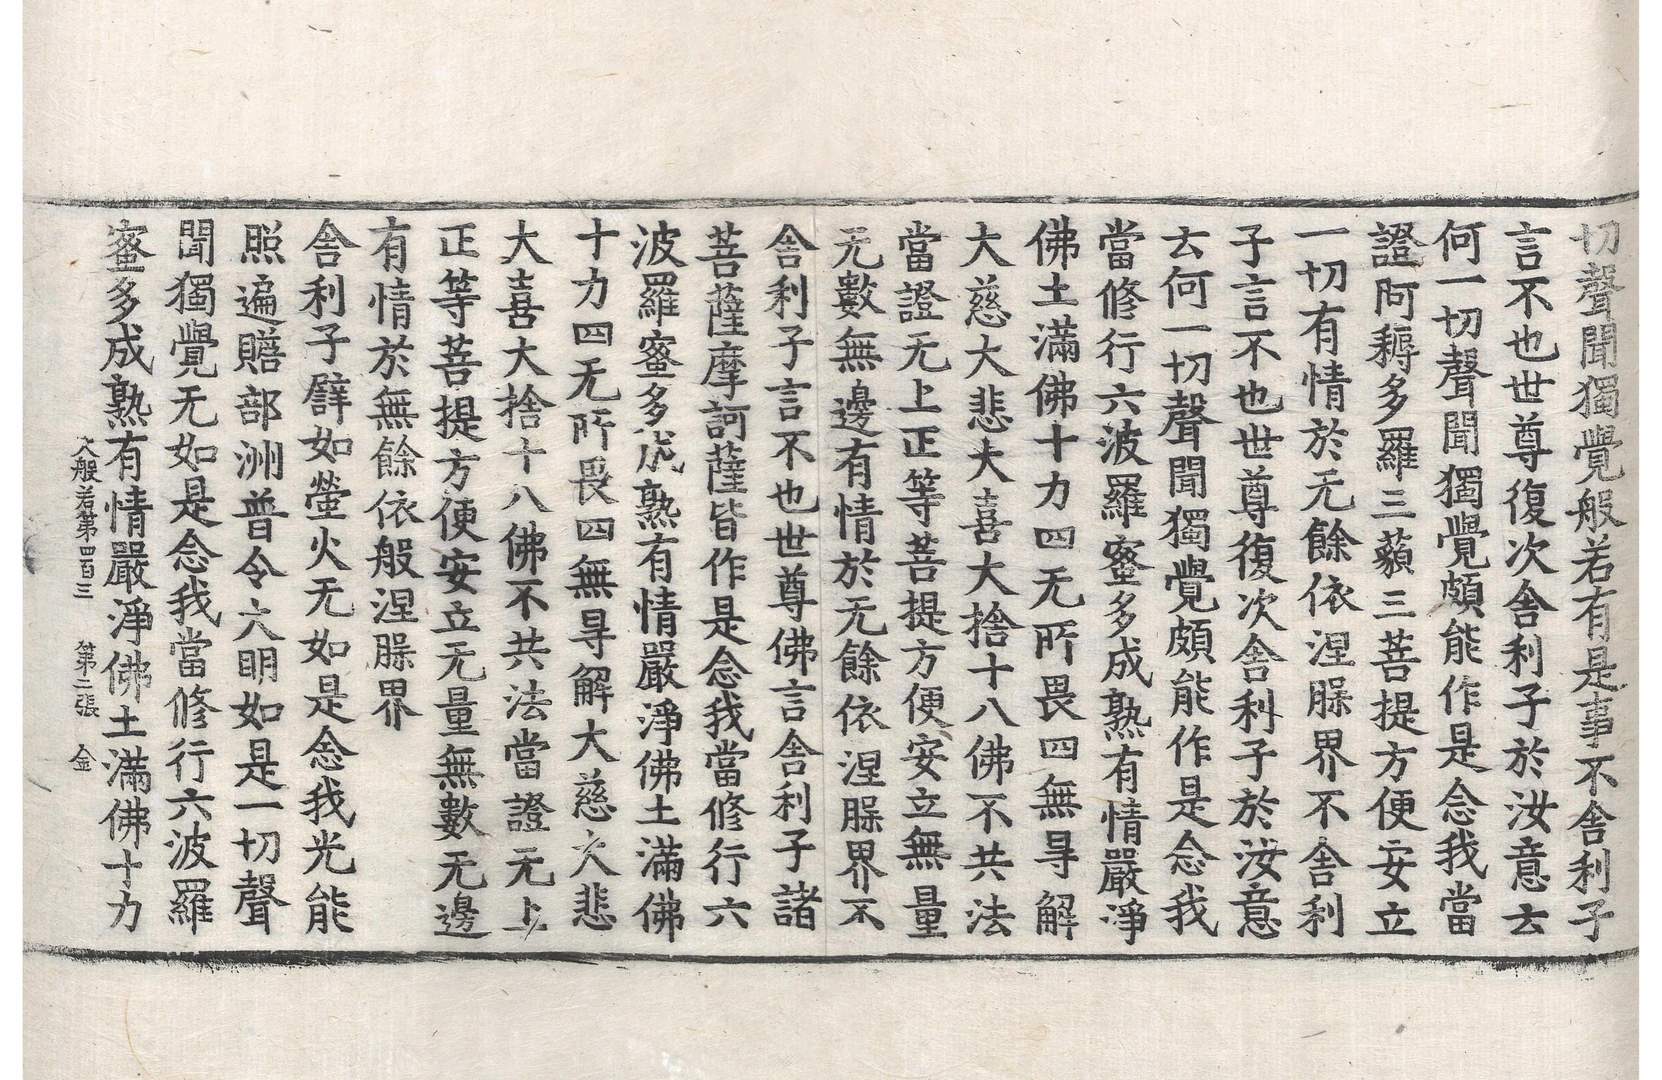 切聲聞獨覺般若有是事不舍利子
言不也世尊復次舍利子於汝意云
何一切聲聞獨覺頗能作是念我當
證阿耨多羅三藐三菩提方便安立
一切有情於无餘依涅槃界不舍利
子言不也世尊復次舍利子於汝意
云何一切聲聞獨覺頗能作是念我
當修行六波羅蜜多成熟有情嚴淨
佛土滿佛十力四无所畏四無㝵解
大慈大悲大喜大捨十八佛不共法
當證无上正等菩提方便安立無量
无數無邊有情於无餘依涅槃界不
舍利子言不也世尊佛言舍利子諸
菩薩摩訶薩皆作是念我當修行六
波羅蜜多成熟有情嚴淨佛土滿佛
十力四无所畏四無㝵解大慈大悲
大喜大捨十八佛不共法當證无上
正等菩提方便安立无量無數无邊
有情於無餘依般涅槃界
舍利子譬如螢火无如是念我光能
照遍贍部洲普令大明如是一切聲
聞獨覺无如是念我當修行六波羅
蜜多成熟有情嚴淨佛土滿佛十力
大般若第四百三 第二張 金